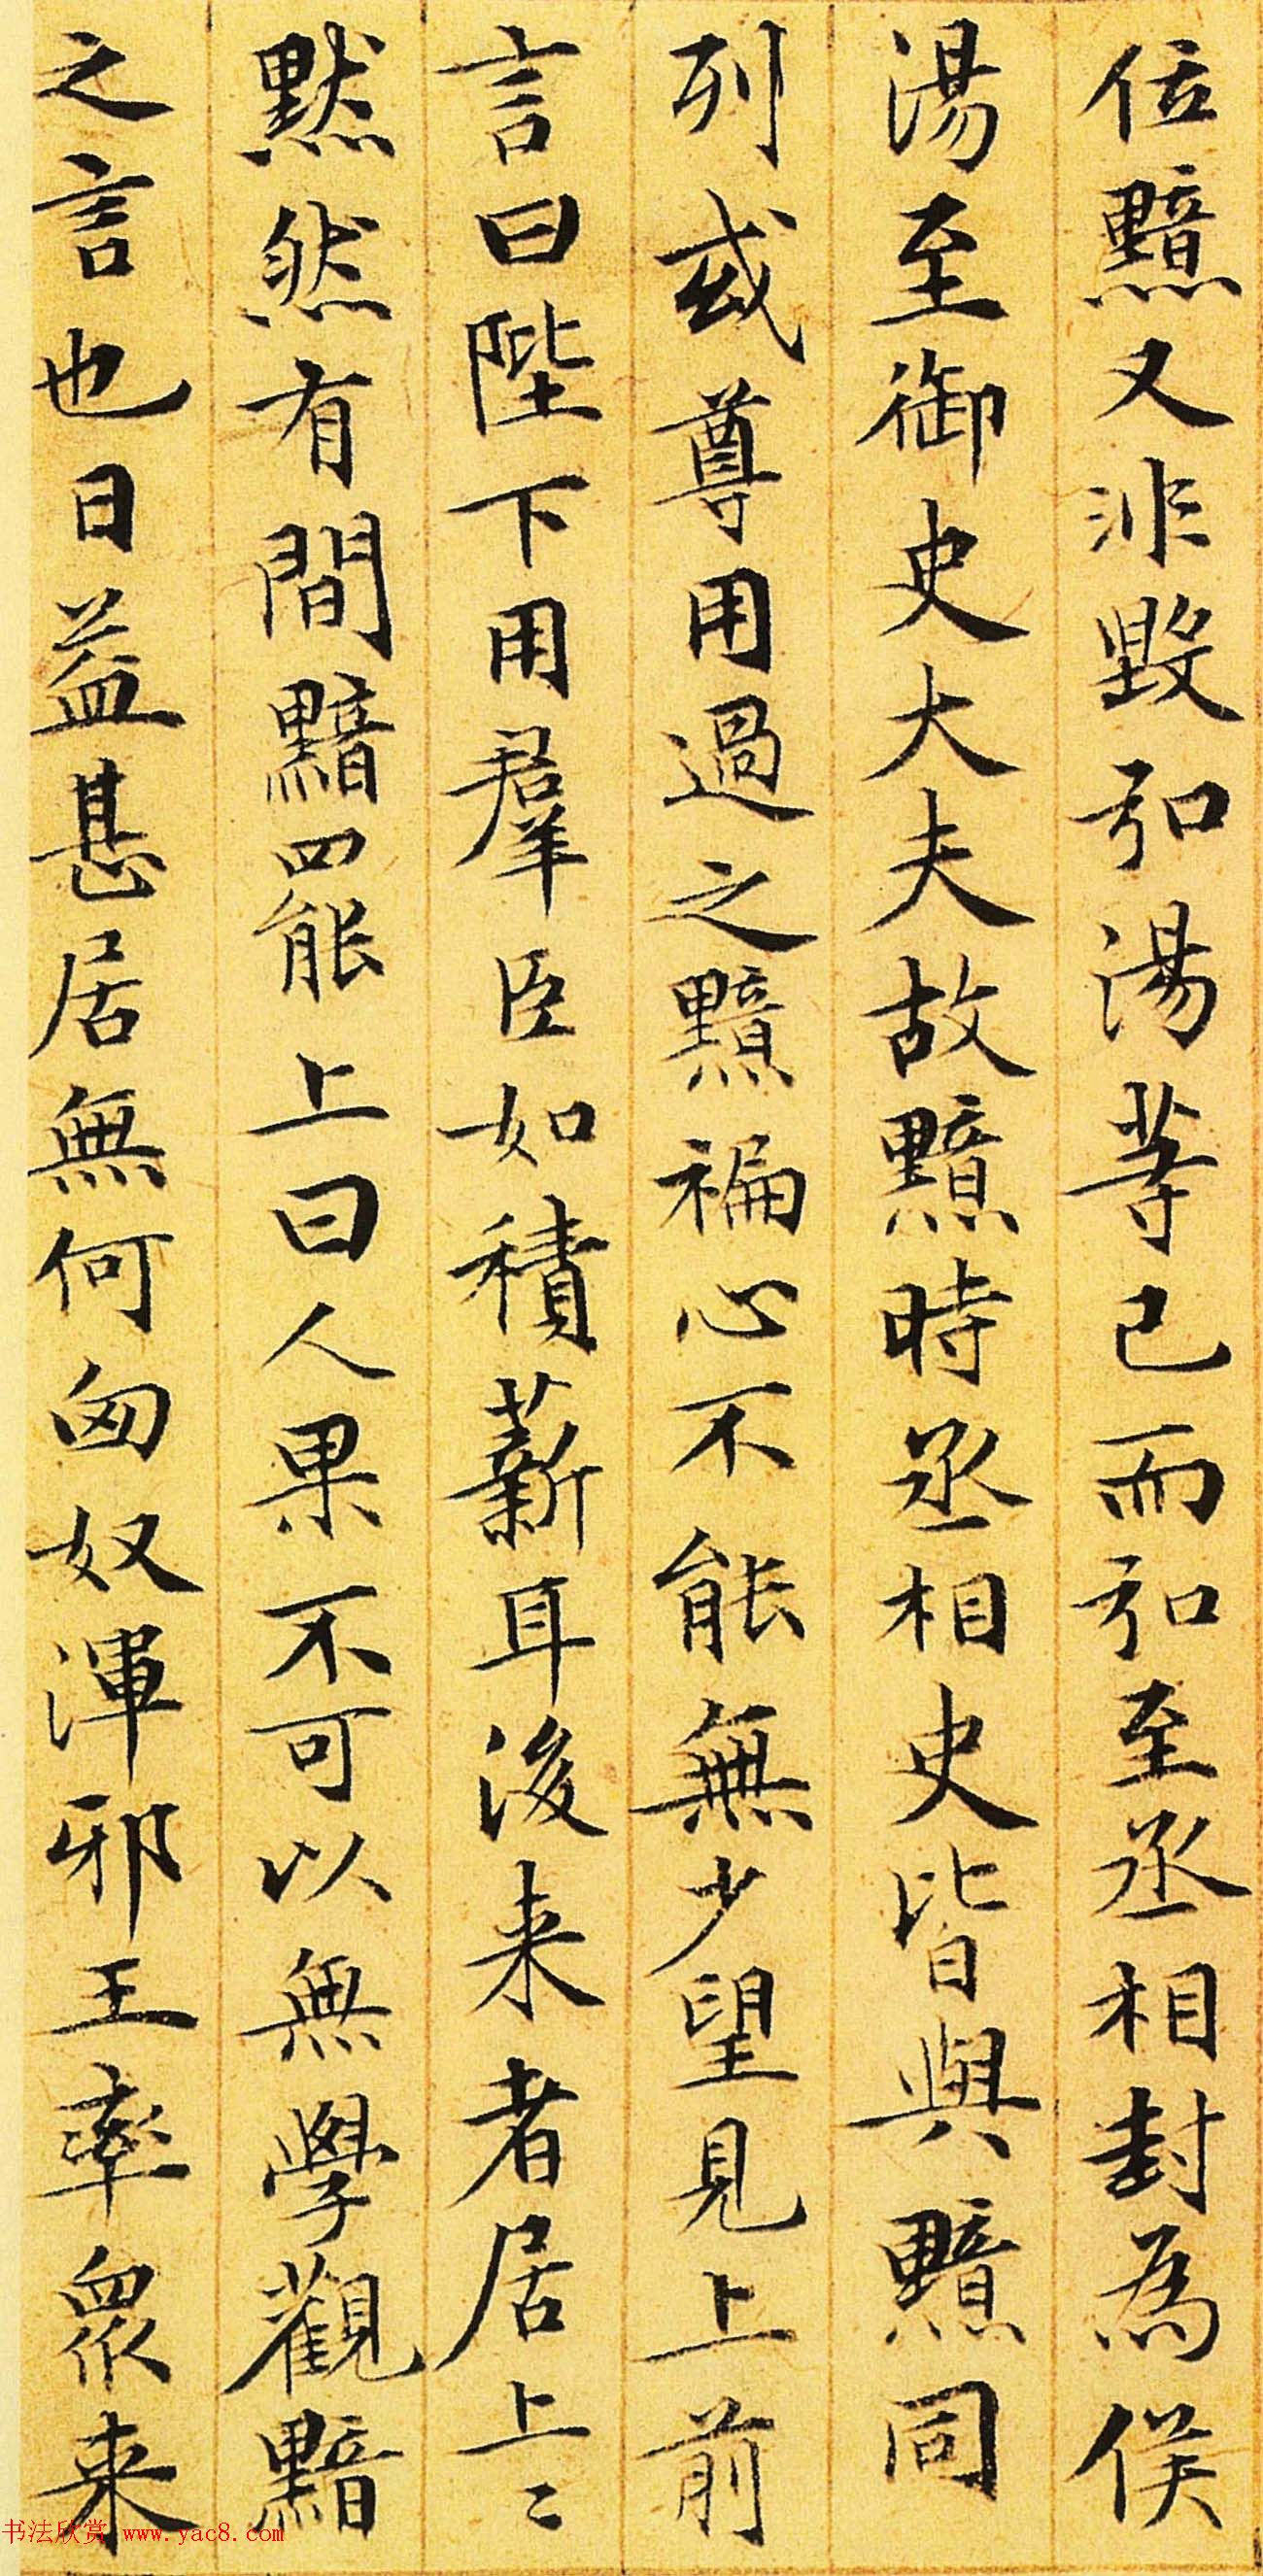 位黯又非毀弘湯等已而弘至丞相封為侯
湯至御史大夫故黯時丞相史皆與黯同
列或尊用過之黯褊心不能無少望見上前
言曰陛下用群臣如積薪耳後来者居上上
默然有間黯罷上曰人果不可以無學觀黯
之言也日益甚居無何匈奴渾邪王率眾来
书法欣赏 www.yac8.com